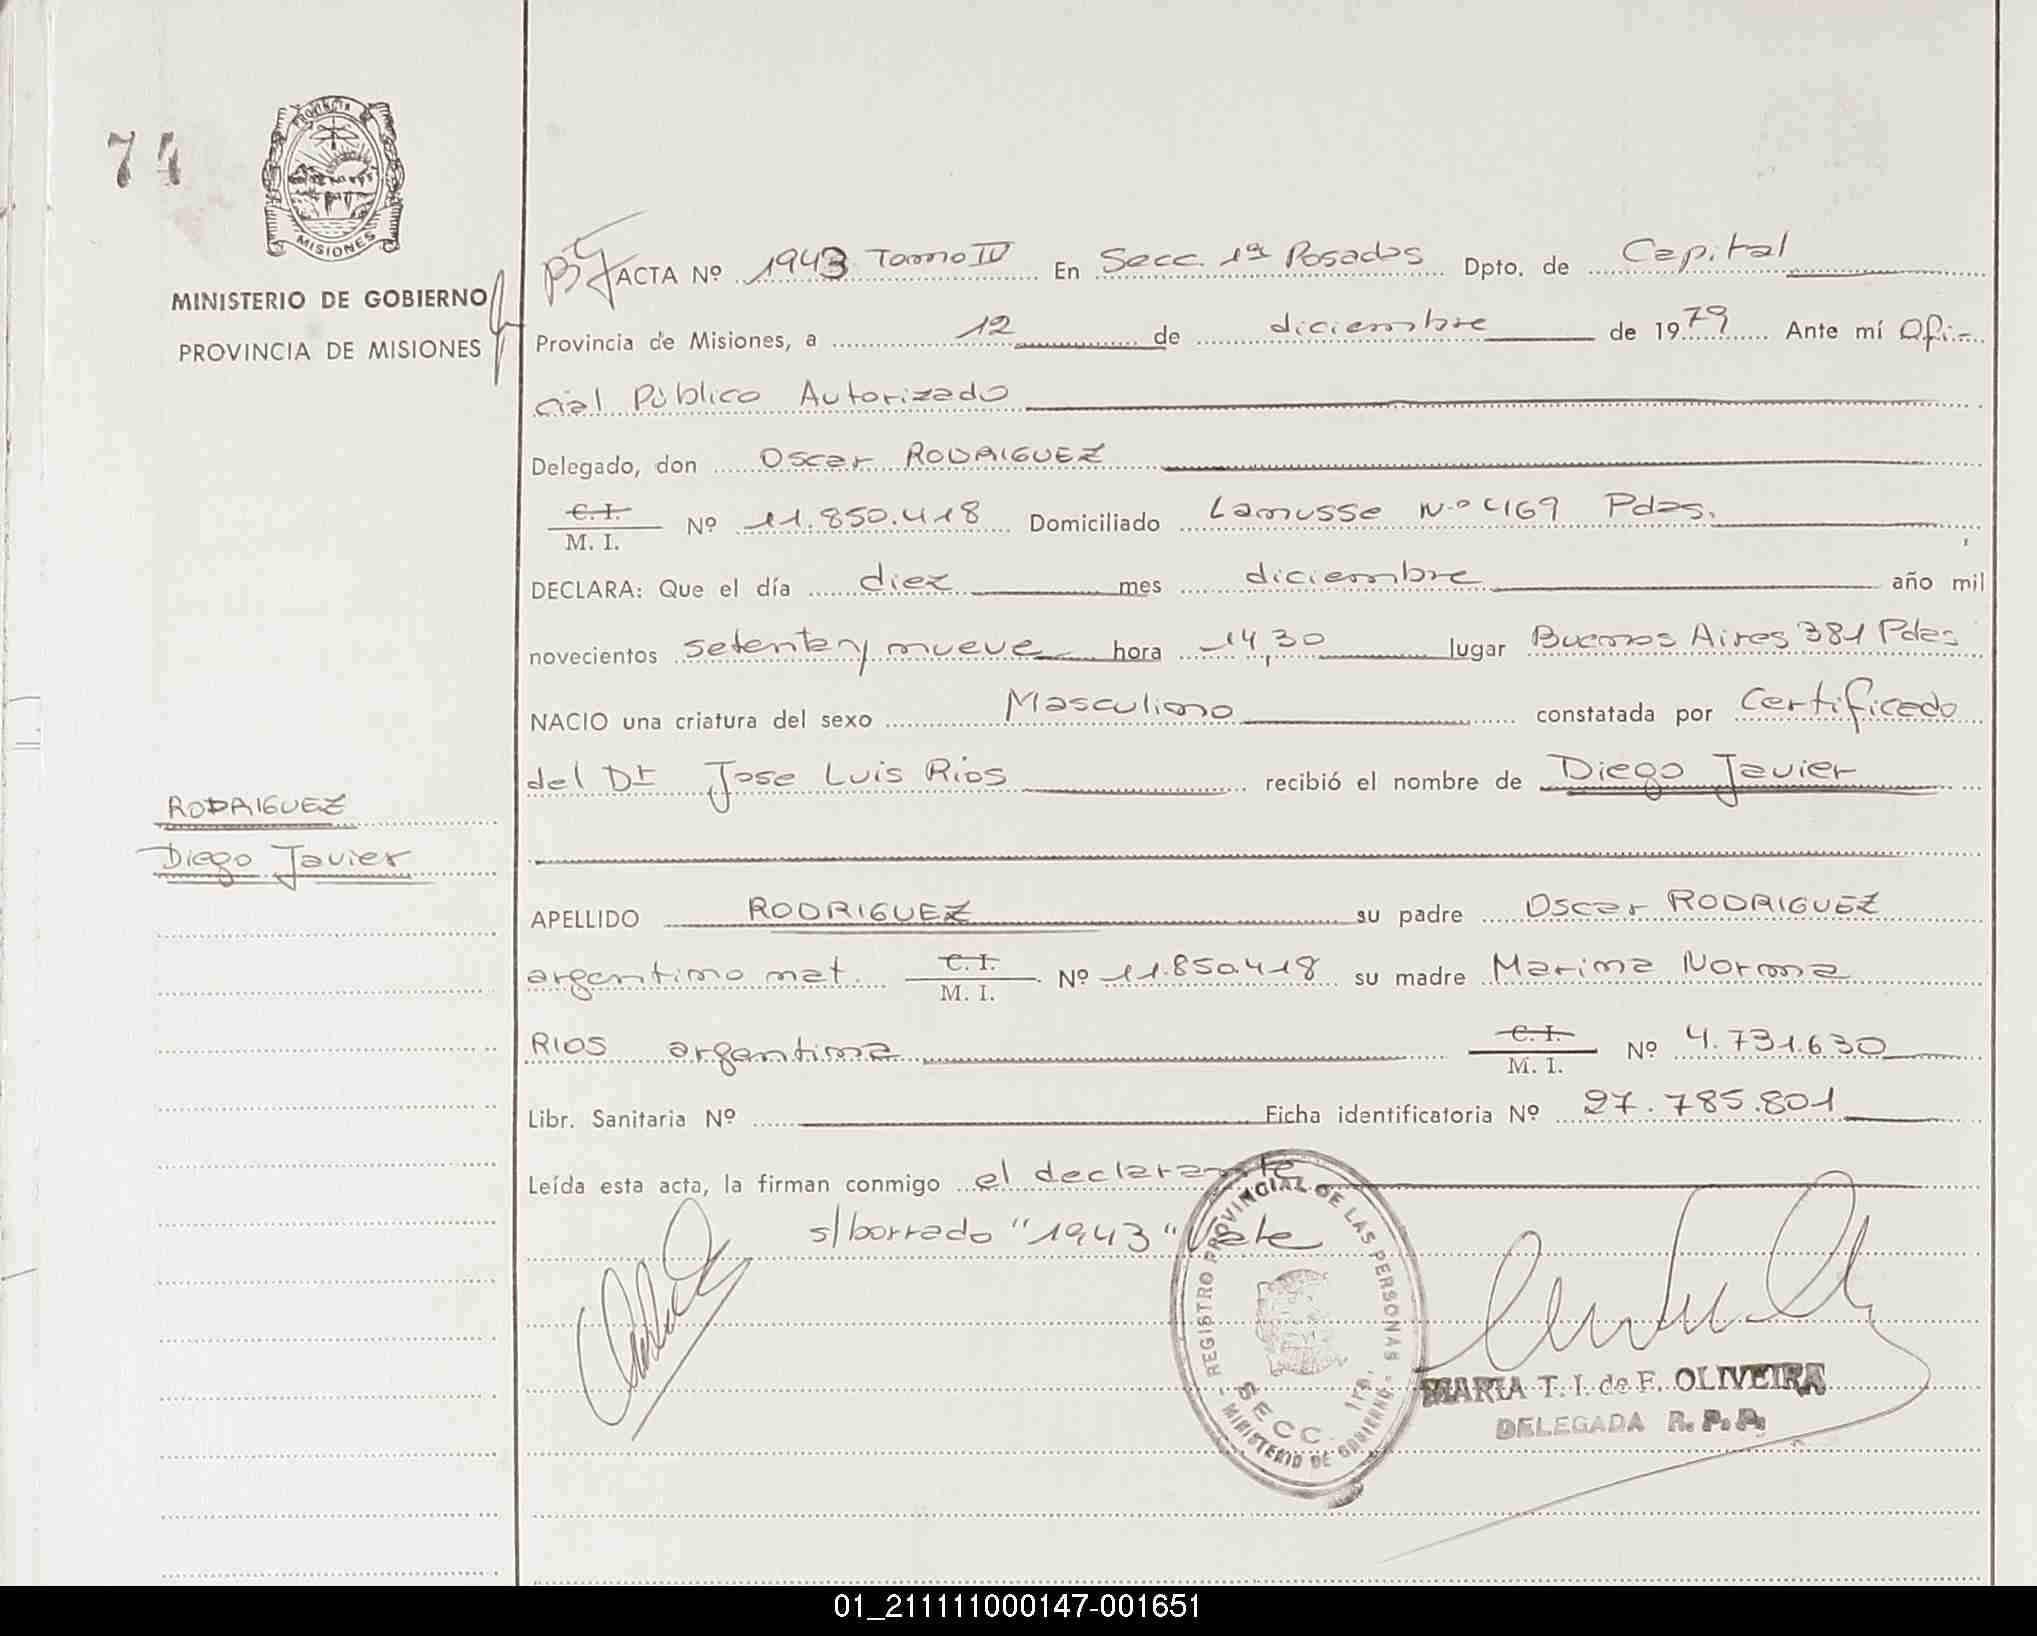 74
PROVINCIA
MISIONES
MINISTERIO DE GOBIERNO
PROVINCIA DE MISIONES
ACTA Nº 1943 Tomo IV En Secc. 1ª Posadas Dpto. de Capital
Provincia de Misiones, a 12 de diciembre de 1979 Ante mí Ofi-
cial Público Autorizado
Delegado, don Oscar RODRIGUEZ
C. I.
M. I. Nº 11.850.418 Domiciliado Lanusse Nº 469 Pdas.
DECLARA: Que el día diez mes diciembre año mil
novecientos setenta y nueve hora 14,30 lugar Buenos Aires 381 Pdas
NACIO una criatura del sexo Masculino constatada por Certificado
del Dr Jose Luis Rios recibió el nombre de Diego Javier
RODRIGUEZ
Diego Javier
APELLIDO RODRIGUEZ su padre Oscar RODRIGUEZ
argentino mat. C. I.
M. I. Nº 11.850.418 su madre Marina Norma
RIOS argentina C. I.
M. I. Nº 4.731.630
Libr. Sanitaria Nº Ficha identificatoria Nº 27.785.801
Leída esta acta, la firman conmigo el declarante
s/borrado "1943" Vale
REGISTRO PROVINCIAL DE LAS PERSONAS
SECC. 1ra.
MINISTERIO DE GOBIERNO
MARIA T. I. de F. OLIVEIRA
DELEGADA R. P. P.
01_211111000147-001651